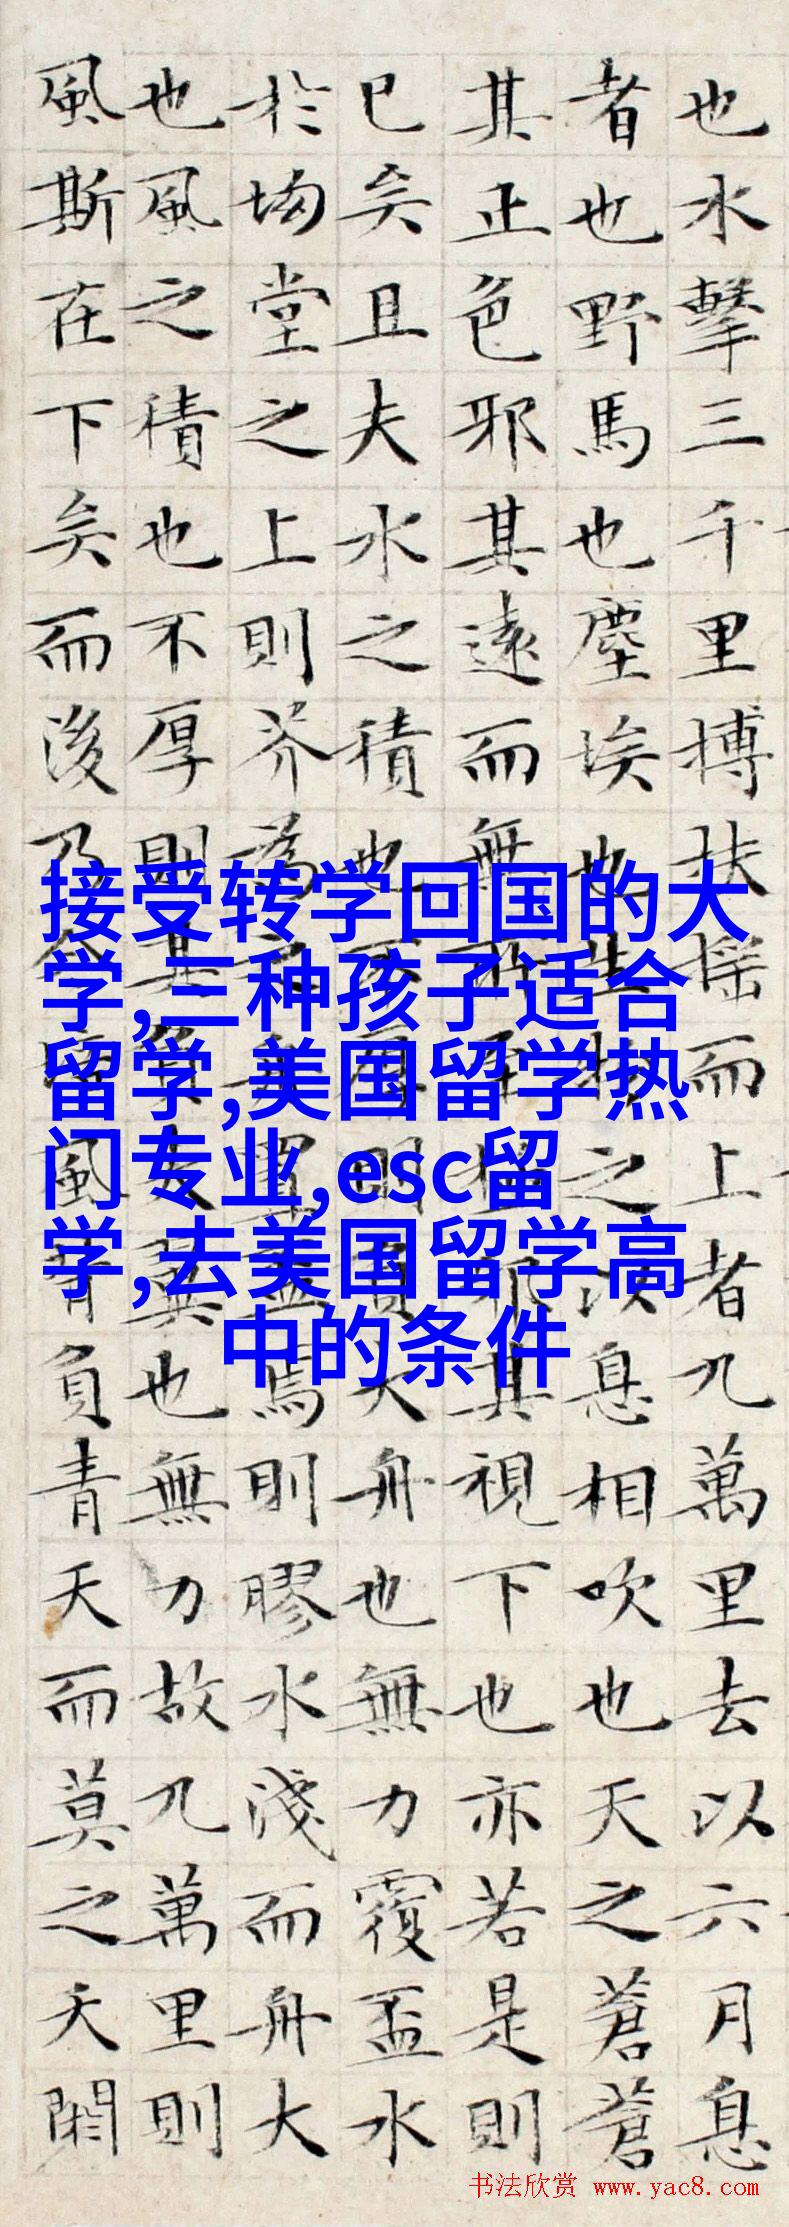 也水擊三千里搏扶搖而上者九萬里去以六月息
者也野馬也塵埃也生物之以息相吹也天之蒼蒼
其正色邪其遠而無所至極邪其視下也亦若是則
已矣且夫水之積也不厚則負大舟也無力覆盃水
於坳堂之上則芥為之舟置盃焉則膠水淺而舟大
也風之積也不厚則其負大翼也無力故九萬里則
風斯在下矣而後乃今培風背負青天而莫之夭閼
接受转学回国的大
学,三种孩子适合
留学,美国留学热
门专业,esc留
学,去美国留学高
中的条件
书法欣赏 www.yac8.com